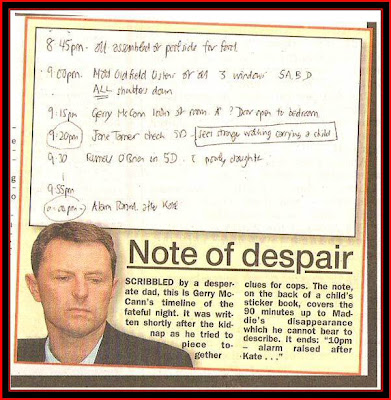 8.45pm. all assembled at poolside for food
9.00pm. Matt Oldfield listens at all 3 windows 5A,B,D
ALL shutters down
9.15pm Gerry McCann looks at room A ? Door open to bedroom
9.20pm Jane Tanner check 5D - sees stranger walking carrying a child
9.30 Russell O'Brien in 5D. poorly daughter
9.55pm
10.00pm Alarm raised after Kate
Note of despair
SCRIBBLED by a desper-
ate dad, this is Gerry Mc-
Cann's timeline of the
fateful night. It was writ-
ten shortly after the kid-
nap as he tried to
piece to-
gether
clues for cops. The note,
on the back of a child's
sticker book, covers the
90 minutes up to Mad-
die's disappearance
which he cannot bear to
describe. It ends: "10pm
– alarm raised after
Kate . . ."